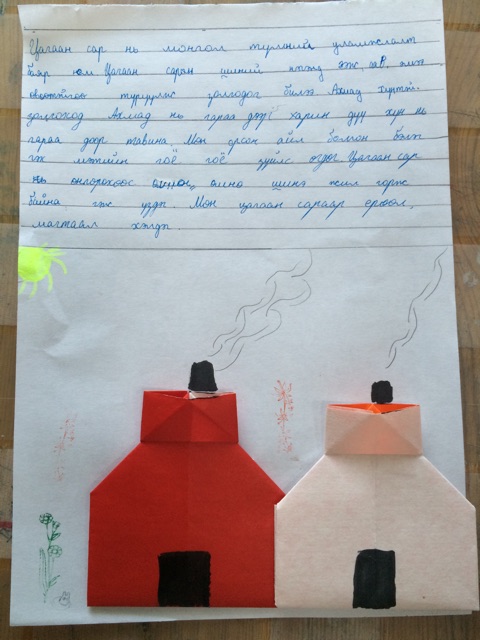 Цагаан сар нь монгол түмний уламжлалт
баяр юм Цагаан сарын шиний нэгэнд ээж, аав, эмээ
өвөөтэйгөө түрүүлж золгодог билээ Ахмад хүнтэй
золгоход Ахмад нь гараа дээр харин дүү хүн нь
гараа доор тавина Мөн орсон айл болгон бэлэг
гэж мэтийн гоё гоё зүйлс өгдөг Цагаан сар
нь өнгөрөхөөс шинэ жил гарж
байна гэж үздэг. Мөн цагаан сараар ерөөл,
магтаал хэлдэг